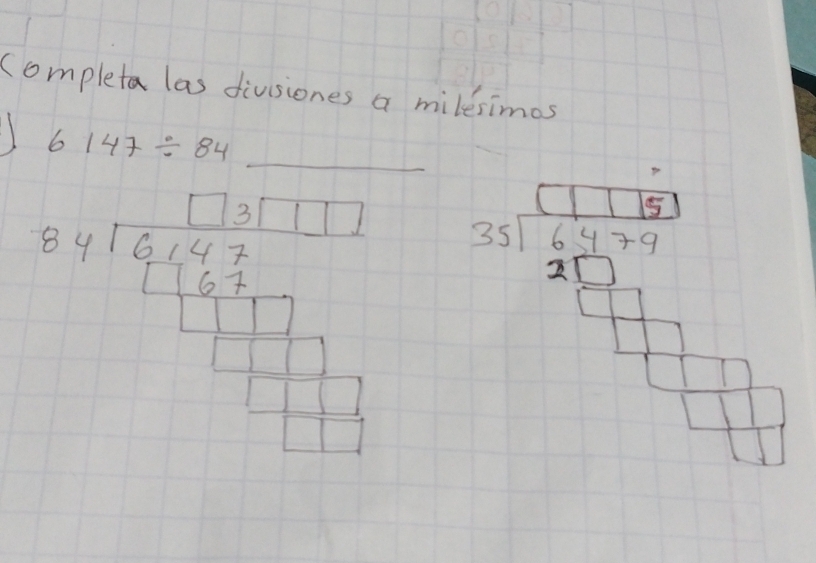 Completa las divisiones a milésimos
) 6147 ÷ 84
3
84 6147
67
5
35 6479
2